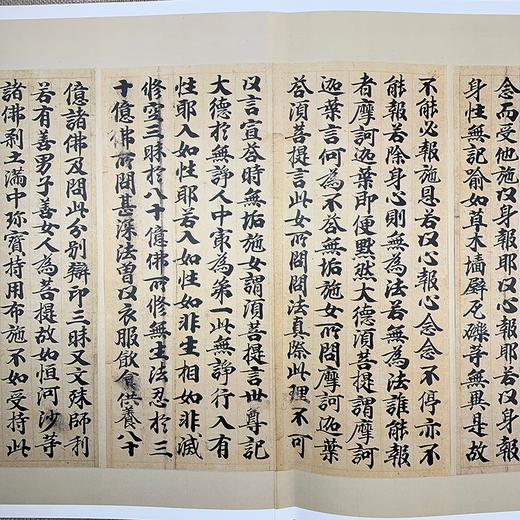 念而受他施以身報耶以心報耶若以身報
身性無記喻如草木墻壁瓦礫等無異是故
不能必報施恩若以心報心念念不停亦不
能報若除身心則無為法若無為法誰能報
者摩訶迦葉即便黙然大德須菩提謂摩訶
迦葉言何為不荅無垢施女所問摩訶迦葉
荅須菩提言此女所問問法真際此理不可
以言宣荅時無垢施女謂須菩提言世尊記
大德於無諍人中寂為第一此無諍行入有
性耶入如性耶若入如性如非生相如非滅
修空三昧於八十億佛所修無生法忍於三
十億佛所問甚深法曾以衣服飲食供養八十
億諸佛及問此分別辯印三昧又文殊師利
若有善男子善女人為菩提故如恒河沙等
諸佛剎土滿中珎寶持用布施不如受持此